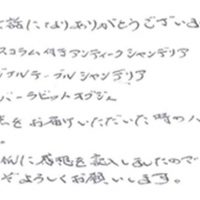 話になりありがとうございま
スコラム付きアンティークシャンデリア
ブルテーブルシャンデリア
バーラビットオブジェ
をお届けいただいた時の
。
紙に感想を記入しましたので
ぞよろしくお願いします。